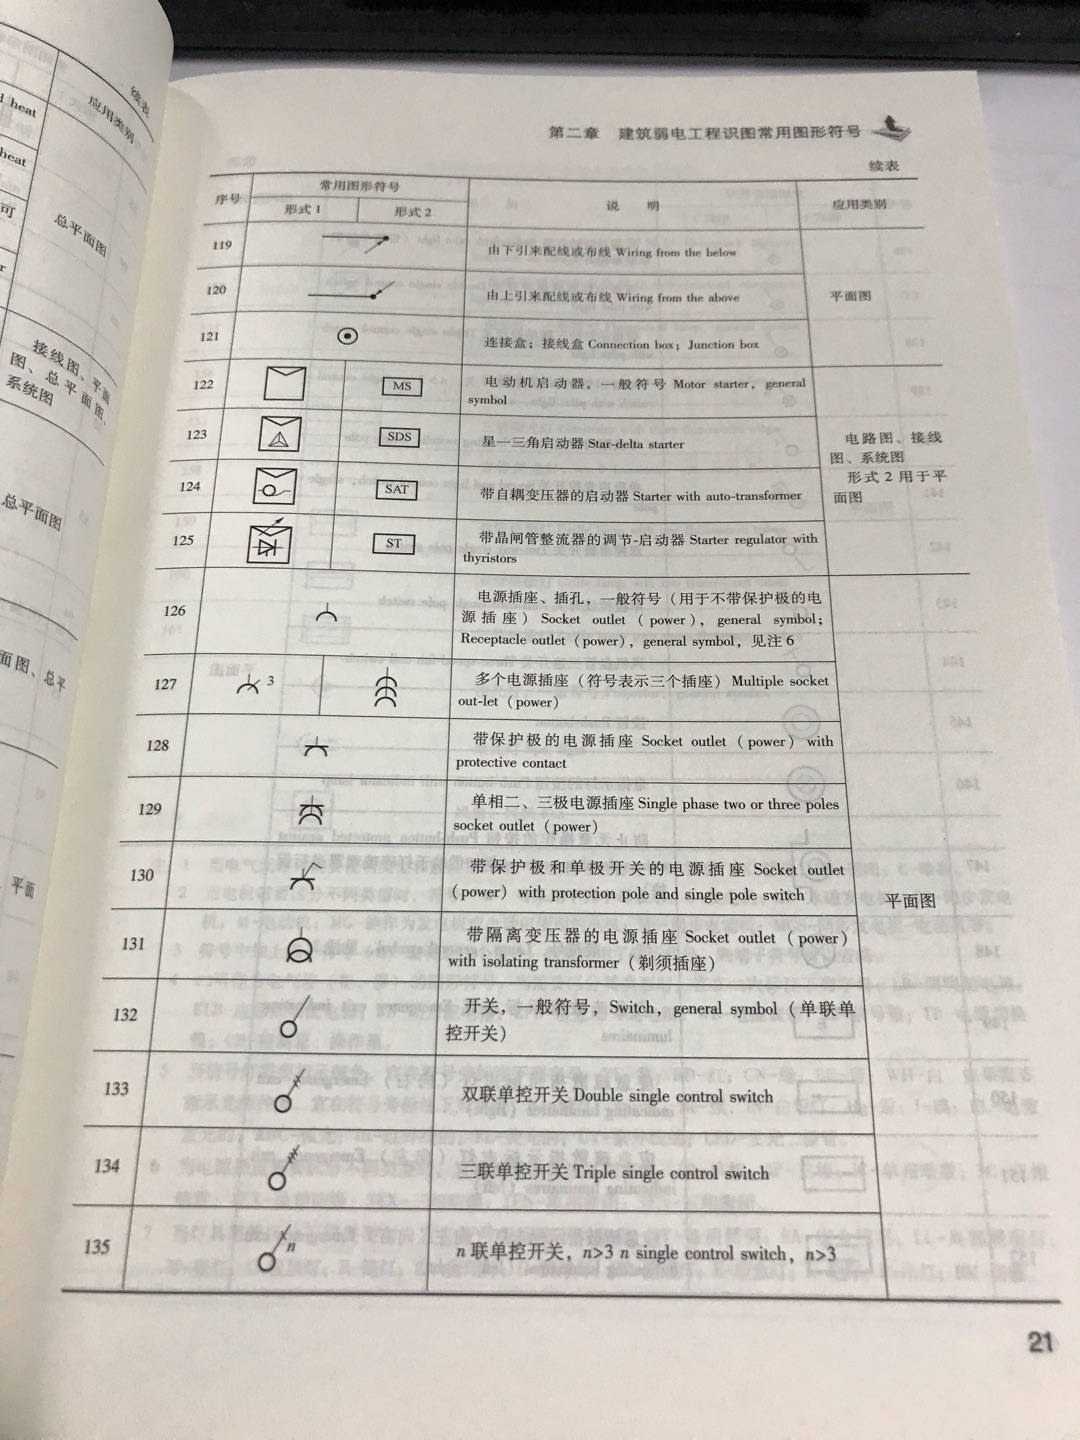 续表
应用类别
heat
heat
可
总平面图
接线图、平面
图、总平面图、
系统图
总平面图
面图、总平
平面
第二章 建筑弱电工程识图常用图形符号
续表
序号
常用图形符号
形式 1
形式 2
说 明
应用类别
119
由下引来配线或布线 Wiring from the below
120
由上引来配线或布线 Wiring from the above
平面图
121
连接盒；接线盒 Connection box；Junction box
122
MS
电动机启动器，一般符号 Motor starter，general
symbol
123
SDS
星一三角启动器 Star-delta starter
124
SAT
带自耦变压器的启动器 Starter with auto-transformer
125
ST
带晶闸管整流器的调节-启动器 Starter regulator with
thyristors
电路图、接线
图、系统图
形式 2 用于平
面图
126
电源插座、插孔，一般符号（用于不带保护极的电
源插座）Socket outlet（power），general symbol；
Receptacle outlet（power），general symbol，见注 6
127
3
多个电源插座（符号表示三个插座）Multiple socket
out-let（power）
128
带保护极的电源插座 Socket outlet（power）with
protective contact
129
单相二、三极电源插座 Single phase two or three poles
socket outlet（power）
130
带保护极和单极开关的电源插座 Socket outlet
（power）with protection pole and single pole switch
平面图
131
带隔离变压器的电源插座 Socket outlet（power）
with isolating transformer（剃须插座）
132
开关，一般符号，Switch，general symbol（单联单
控开关）
133
双联单控开关 Double single control switch
134
三联单控开关 Triple single control switch
135
n
n 联单控开关，n>3 n single control switch，n>3
21